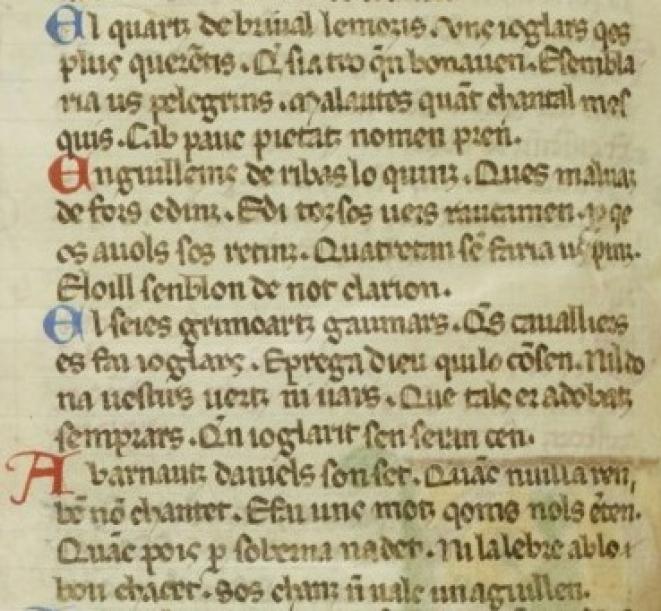 El quartz de briual lemozis. Vns ioglars qes
plus querẽtis. Q̃ sia tro qͥn bonauen. E sembla
ria us pelegrins. Malautes quãt chantal mes
quis. Cab pauc pietatz nomen pren.
Enguillems de ribas lo quinz. Ques maluatz
de fors edinz. E di toz sos uers raucamen.
es auols sos retinz. Quatretan sẽ faria us pinz.
El oill senblon de not clarion.
El seies grimoartz gaumars. Q̃s caualliers
es fai ioglars. E prega dieu qui lo cõsen. Nil do
na uestirs uertz ni uars. Que tals er adobatz
semprars. Qͥn ioglarit sen seran cen.
Ab arnautz daniels son set. Quãc nuilla ren,
bẽ nõ chantet. E fai uns motz qoms nols ẽten.
Quãc pois p soberna nadet. Ni la lebre ab lo
bou chacet. Sos chanz ñ uale un aguillen.